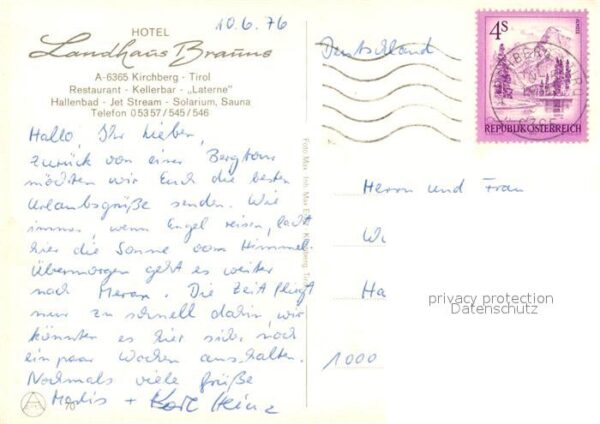 HOTEL
Landhaus Brauns
A-6365 Kirchberg - Tirol
Restaurant - Kellerbar - „Laterne"
Hallenbad - Jet Stream - Solarium, Sauna
Telefon 0 53 57 / 545 / 546
10.6.76
Hallo, Ihr Lieben,
zurück von einer Bergtour
möchten wir Euch die besten
Urlaubsgrüße senden. Wie
immer, wenn Engel reisen, lacht
hier die Sonne vom Himmel.
Übermorgen geht es weiter
nach Meran. Die Zeit fliegt
nur zu schnell dahin, wir
könnten es hier sicher noch
ein paar Wochen aushalten.
Nochmals viele Grüße
+ Karl Heinz
Deutschland
4S
REPUBLIK ÖSTERREICH
Herrn und Frau
W
Ha
1000
privacy protection
Datenschutz